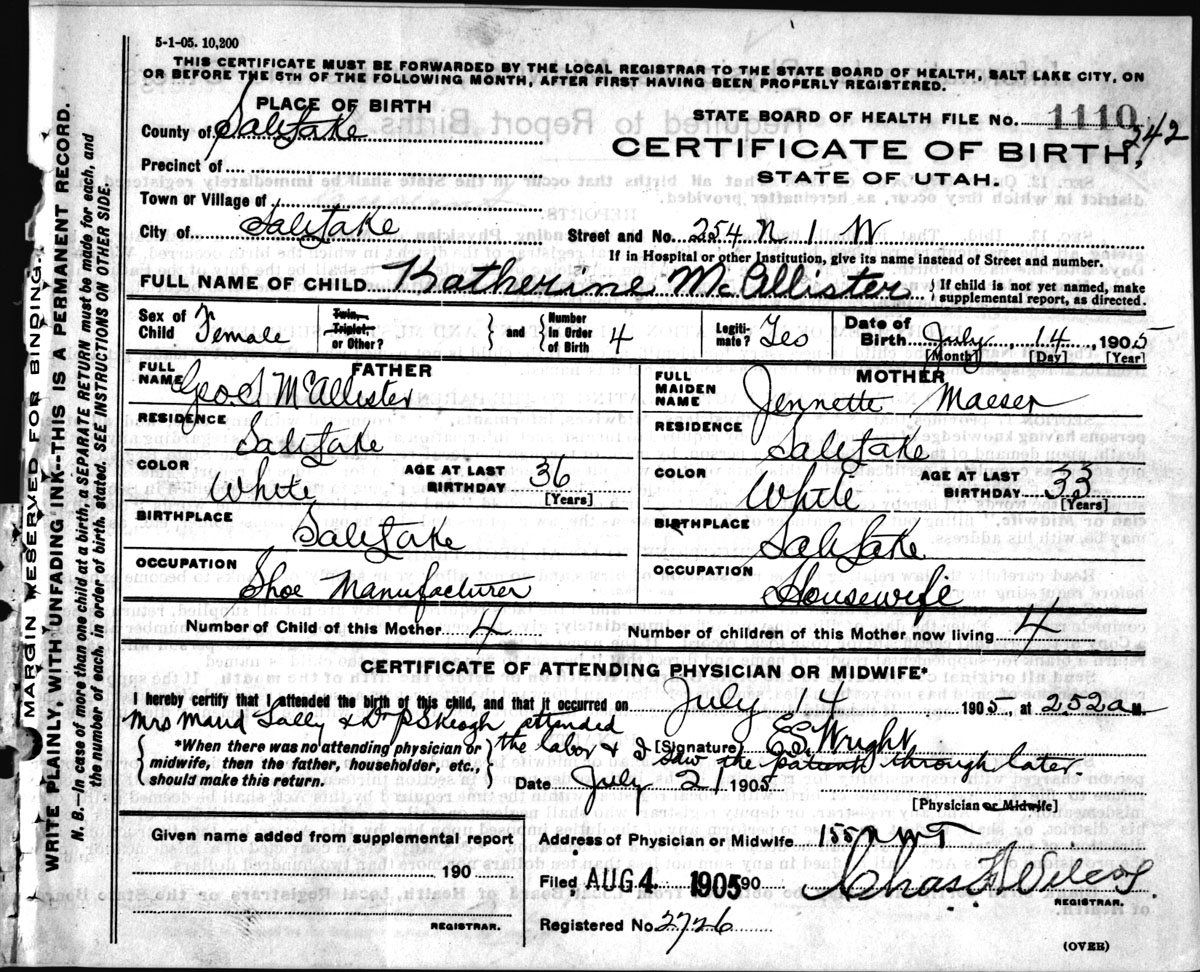 5-1-05. 10,200
THIS CERTIFICATE MUST BE FORWARDED BY THE LOCAL REGISTRAR TO THE STATE BOARD OF HEALTH, SALT LAKE CITY, ON
OR BEFORE THE 5TH OF THE FOLLOWING MONTH, AFTER FIRST HAVING BEEN PROPERLY REGISTERED.
PLACE OF BIRTH
County of Salt Lake
Precinct of
Town or Village of
City of Salt Lake
STATE BOARD OF HEALTH FILE No. 1110
242
CERTIFICATE OF BIRTH,
STATE OF UTAH.
Street and No. 254 N 1 W
If in Hospital or other Institution, give its name instead of Street and number.
FULL NAME OF CHILD Katherine McAllister { If child is not yet named, make supplemental report, as directed.
Sex of Child Female
Twin, Triplet, or Other? } and { Number In Order of Birth 4
Legitimate? Yes
Date of Birth July 14 1905
[Month] [Day] [Year]
FATHER
FULL NAME Geo S McAllister
RESIDENCE Salt Lake
COLOR White AGE AT LAST BIRTHDAY 36 [Years]
BIRTHPLACE Salt Lake
OCCUPATION Shoe Manufacturer
MOTHER
FULL MAIDEN NAME Jennette Maeser
RESIDENCE Salt Lake
COLOR White AGE AT LAST BIRTHDAY 33 [Years]
BIRTHPLACE Salt Lake
OCCUPATION Housewife
Number of Child of this Mother 4 Number of children of this Mother now living 4
CERTIFICATE OF ATTENDING PHYSICIAN OR MIDWIFE*
I hereby certify that I attended the birth of this child, and that it occurred on July 4 1905, at 252 a M.
Mrs Maud & Dr P S Keogh attended
the labor & I saw the patient through later.
{ *When there was no attending physician or midwife, then the father, householder, etc., should make this return. }
[Signature] Wright
Date July 21 1905
[Physician or Midwife]
Given name added from supplemental report
190
REGISTRAR.
Address of Physician or Midwife 155
Filed AUG 4 1905 90 Chas
REGISTRAR.
Registered No. 2726
(OVER)
MARGIN RESERVED FOR BINDING.
WRITE PLAINLY, WITH UNFADING INK--THIS IS A PERMANENT RECORD.
N. B.--In case of more than one child at a birth, a SEPARATE RETURN must be made for each, and
the number of each, in order of birth, stated. SEE INSTRUCTIONS ON OTHER SIDE.